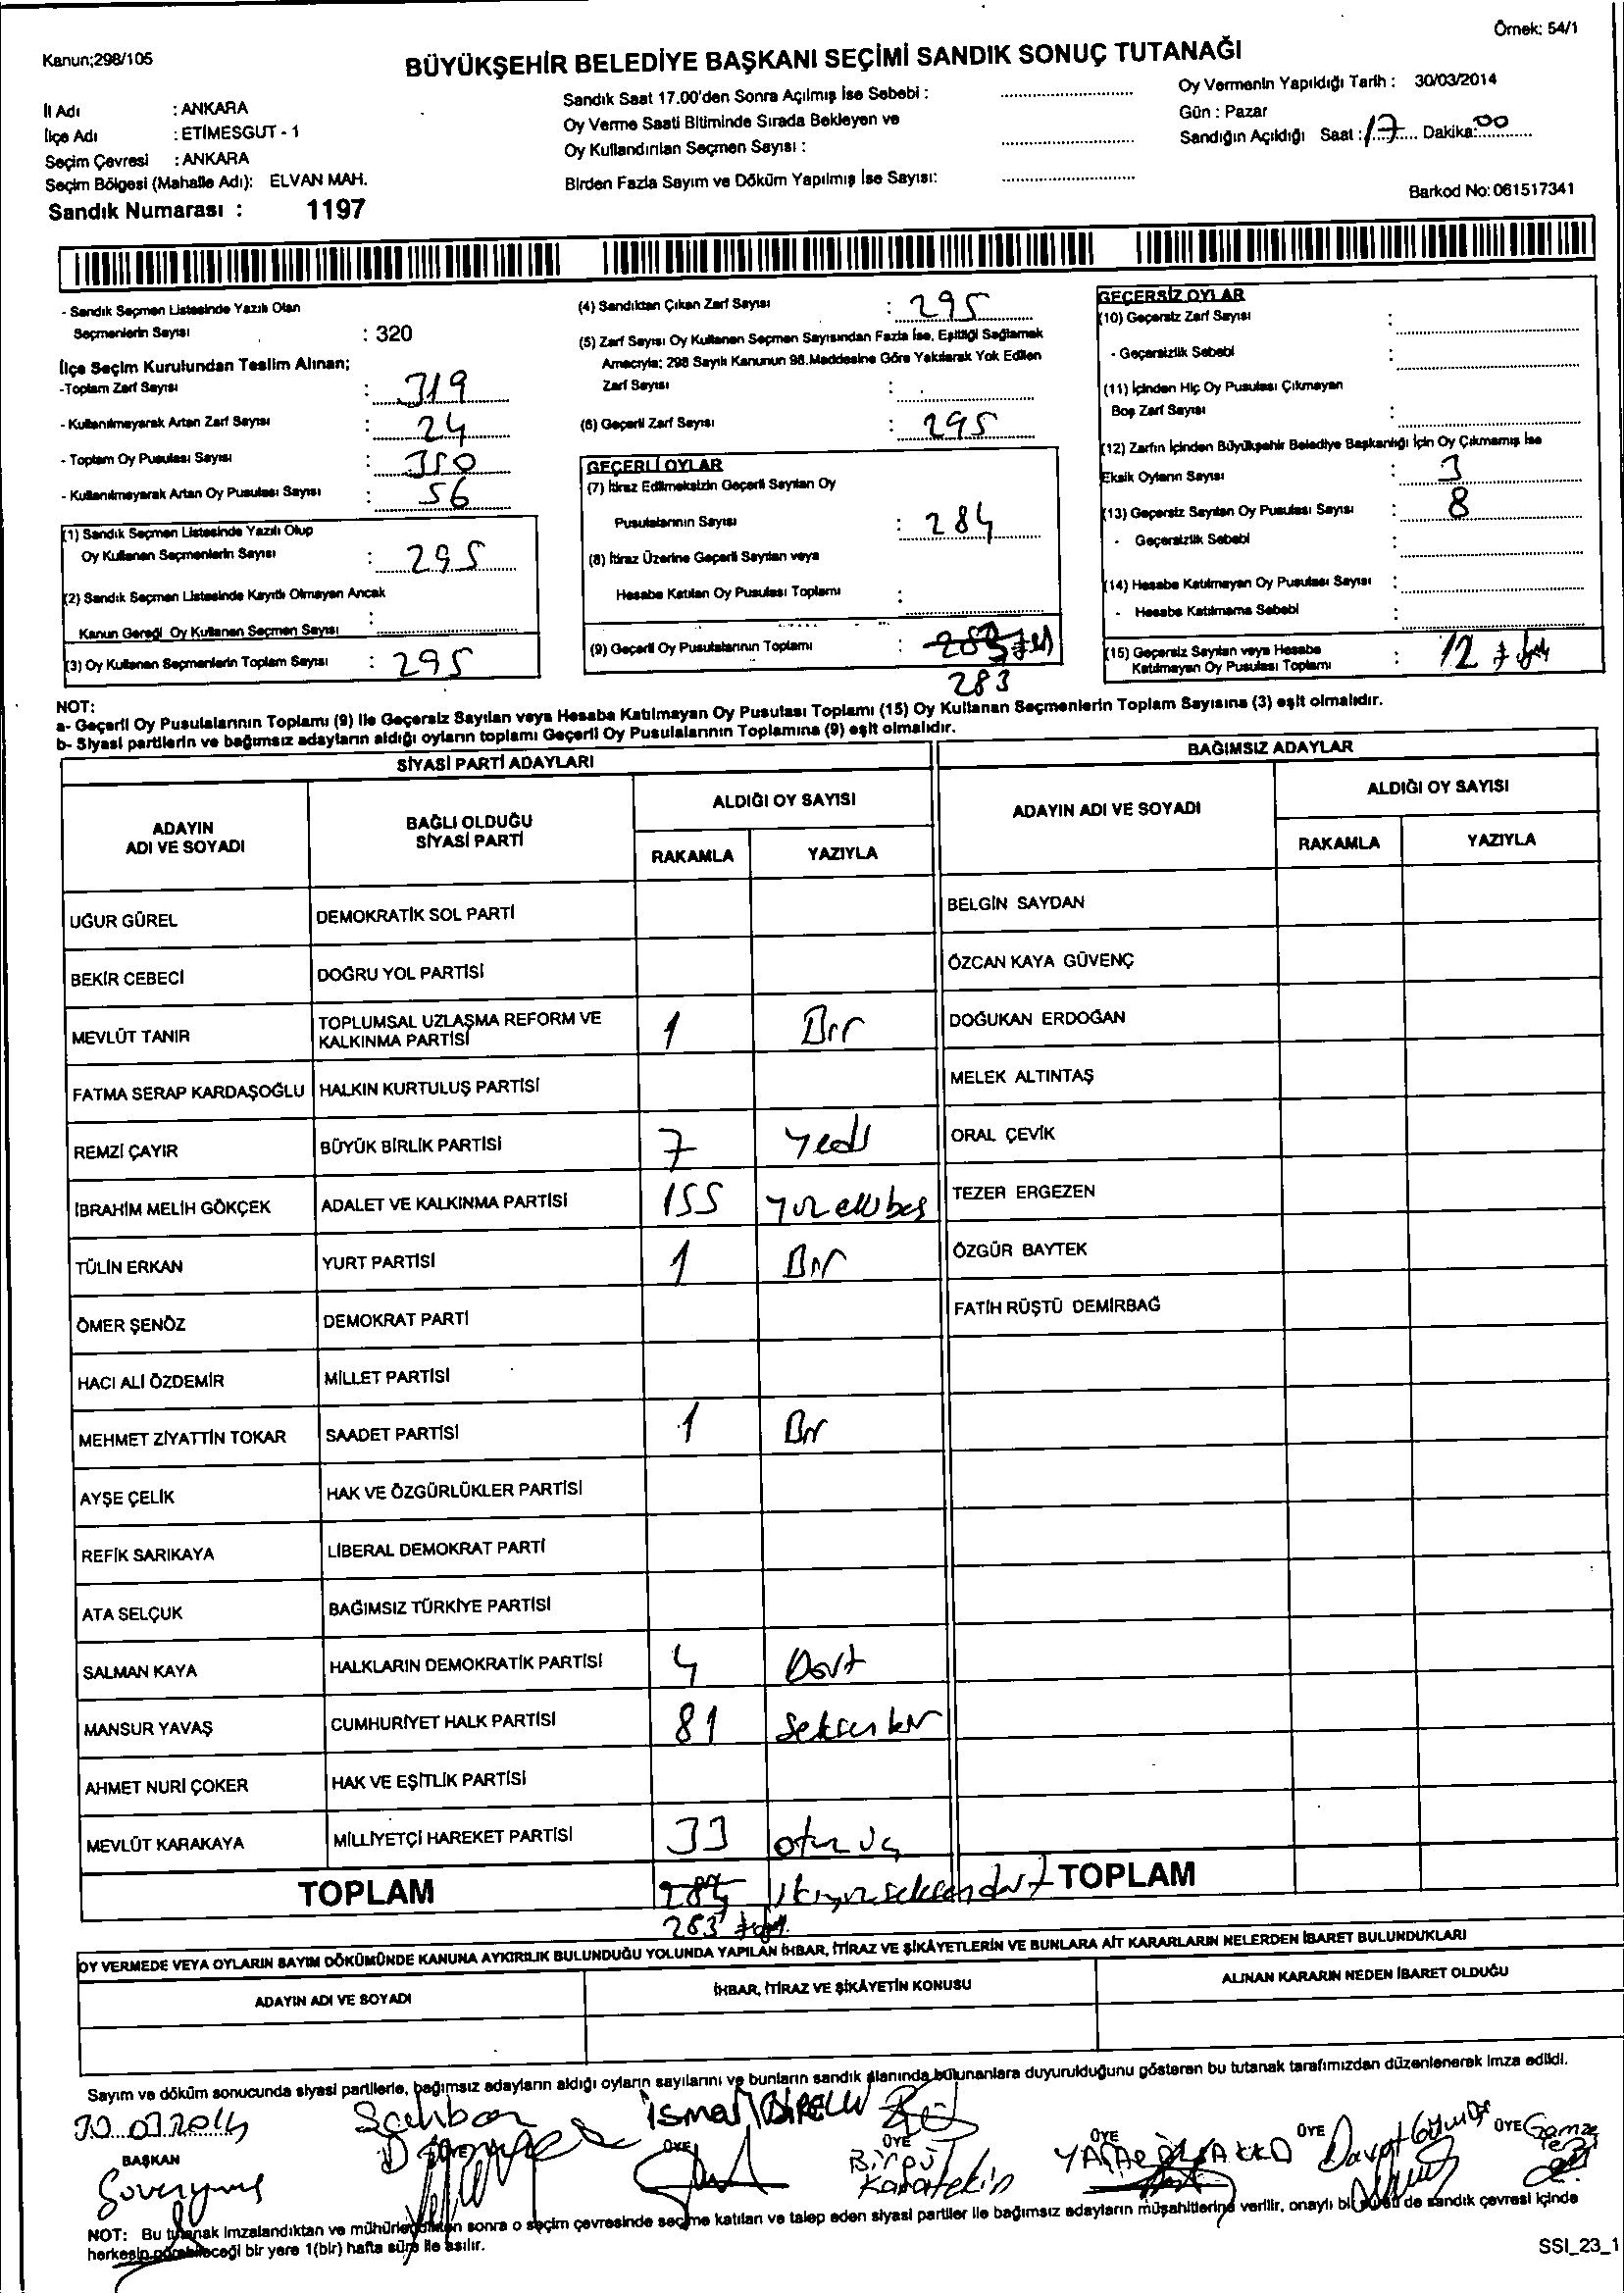 Örnek: 54/1
Kanun;298/105
BÜYÜKŞEHİR BELEDİYE BAŞKANI SEÇİMİ SANDIK SONUÇ TUTANAĞI
İl Adı : ANKARA
İlçe Adı : ETİMESGUT - 1
Seçim Çevresi : ANKARA
Seçim Bölgesi (Mahalle Adı): ELVAN MAH.
Sandık Numarası : 1197
Sandık Saat 17.00'den Sonra Açılmış İse Sebebi :
Oy Verme Saati Bitiminde Sırada Bekleyen ve
Oy Kullandırılan Seçmen Sayısı :
Birden Fazla Sayım ve Döküm Yapılmış İse Sayısı:
Oy Vermenin Yapıldığı Tarih : 30/03/2014
Gün : Pazar
Sandığın Açıldığı Saat : 17 Dakika: 00
Barkod No: 061517341
- Sandık Seçmen Listesinde Yazılı Olan
Seçmenlerin Sayısı : 320
İlçe Seçim Kurulundan Teslim Alınan;
-Toplam Zarf Sayısı : 319
- Kullanılmayarak Artan Zarf Sayısı : 24
- Toplam Oy Pusulası Sayısı : 350
- Kullanılmayarak Artan Oy Pusulası Sayısı : 56
(1) Sandık Seçmen Listesinde Yazılı Olup
Oy Kullanan Seçmenlerin Sayısı : 295
(2) Sandık Seçmen Listesinde Kayıtlı Olmayan Ancak
Kanun Gereği Oy Kullanan Seçmen Sayısı :
(3) Oy Kullanan Seçmenlerin Toplam Sayısı : 295
(4) Sandıktan Çıkan Zarf Sayısı : 295
(5) Zarf Sayısı Oy Kullanan Seçmen Sayısından Fazla İse, Eşitliği Sağlamak
Amacıyla; 298 Sayılı Kanunun 98.Maddesine Göre Yakılarak Yok Edilen
Zarf Sayısı :
(6) Geçerli Zarf Sayısı : 295
GEÇERLİ OYLAR
(7) İtiraz Edilmeksizin Geçerli Sayılan Oy
Pusulalarının Sayısı : 284
(8) İtiraz Üzerine Geçerli Sayılan veya
Hesaba Katılan Oy Pusulası Toplamı :
(9) Geçerli Oy Pusulalarının Toplamı :
283
GEÇERSİZ OYLAR
(10) Geçersiz Zarf Sayısı :
- Geçersizlik Sebebi :
(11) İçinden Hiç Oy Pusulası Çıkmayan
Boş Zarf Sayısı :
(12) Zarfın İçinden Büyükşehir Belediye Başkanlığı İçin Oy Çıkmamış İse
Eksik Oyların Sayısı : 3
(13) Geçersiz Sayılan Oy Pusulası Sayısı : 8
- Geçersizlik Sebebi :
(14) Hesaba Katılmayan Oy Pusulası Sayısı :
- Hesaba Katılmama Sebebi :
(15) Geçersiz Sayılan veya Hesaba
Katılmayan Oy Pusulası Toplamı : 12
NOT:
a- Geçerli Oy Pusulalarının Toplamı (9) ile Geçersiz Sayılan veya Hesaba Katılmayan Oy Pusulası Toplamı (15) Oy Kullanan Seçmenlerin Toplam Sayısına (3) eşit olmalıdır.
b- Siyasi partilerin ve bağımsız adayların aldığı oyların toplamı Geçerli Oy Pusulalarının Toplamına (9) eşit olmalıdır.
SİYASİ PARTİ ADAYLARI
BAĞIMSIZ ADAYLAR
ADAYIN ADI VE SOYADI
BAĞLI OLDUĞU SİYASİ PARTİ
ALDIĞI OY SAYISI
RAKAMLA YAZIYLA
ADAYIN ADI VE SOYADI
ALDIĞI OY SAYISI
RAKAMLA YAZIYLA
UĞUR GÜREL DEMOKRATİK SOL PARTİ BELGİN SAYDAN
BEKİR CEBECİ DOĞRU YOL PARTİSİ ÖZCAN KAYA GÜVENÇ
MEVLÜT TANIR TOPLUMSAL UZLAŞMA REFORM VE KALKINMA PARTİSİ 1 Bir DOĞUKAN ERDOĞAN
FATMA SERAP KARDAŞOĞLU HALKIN KURTULUŞ PARTİSİ MELEK ALTINTAŞ
REMZİ ÇAYIR BÜYÜK BİRLİK PARTİSİ 7 Yedi ORAL ÇEVİK
İBRAHİM MELİH GÖKÇEK ADALET VE KALKINMA PARTİSİ 155 Yüzellibeş TEZER ERGEZEN
TÜLİN ERKAN YURT PARTİSİ 1 Bir ÖZGÜR BAYTEK
ÖMER ŞENÖZ DEMOKRAT PARTİ FATİH RÜŞTÜ DEMİRBAĞ
HACI ALİ ÖZDEMİR MİLLET PARTİSİ
MEHMET ZİYATTİN TOKAR SAADET PARTİSİ 1 Bir
AYŞE ÇELİK HAK VE ÖZGÜRLÜKLER PARTİSİ
REFİK SARIKAYA LİBERAL DEMOKRAT PARTİ
ATA SELÇUK BAĞIMSIZ TÜRKİYE PARTİSİ
SALMAN KAYA HALKLARIN DEMOKRATİK PARTİSİ 4 Dört
MANSUR YAVAŞ CUMHURİYET HALK PARTİSİ 81 Seksenbir
AHMET NURİ ÇOKER HAK VE EŞİTLİK PARTİSİ
MEVLÜT KARAKAYA MİLLİYETÇİ HAREKET PARTİSİ 33 otuzüç
TOPLAM 284 ikiyüzseksendört TOPLAM
283
OY VERMEDE VEYA OYLARIN SAYIM DÖKÜMÜNDE KANUNA AYKIRILIK BULUNDUĞU YOLUNDA YAPILAN İHBAR, İTİRAZ VE ŞİKÂYETLERİN VE BUNLARA AİT KARARLARIN NELERDEN İBARET BULUNDUKLARI
ADAYIN ADI VE SOYADI İHBAR, İTİRAZ VE ŞİKÂYETİN KONUSU ALINAN KARARIN NEDEN İBARET OLDUĞU
Sayım ve döküm sonucunda siyasi partilerle, bağımsız adayların aldığı oyların sayılarını ve bunların sandık alanında bulunanlara duyurulduğunu gösteren bu tutanak tarafımızdan düzenlenerek imza edildi.
30.03.2014
BAŞKAN ÜYE ÜYE ÜYE ÜYE ÜYE
İsmail
Birgül Karatekin
Davut
Gamze
NOT: Bu tutanak imzalandıktan ve mühürlendikten sonra o seçim çevresinde seçime katılan ve talep eden siyasi partiler ile bağımsız adayların müşahitlerine verilir, onaylı bir sureti de sandık çevresi içinde
herkesin görebileceği bir yere 1(bir) hafta süre ile asılır.
SSI_23_1